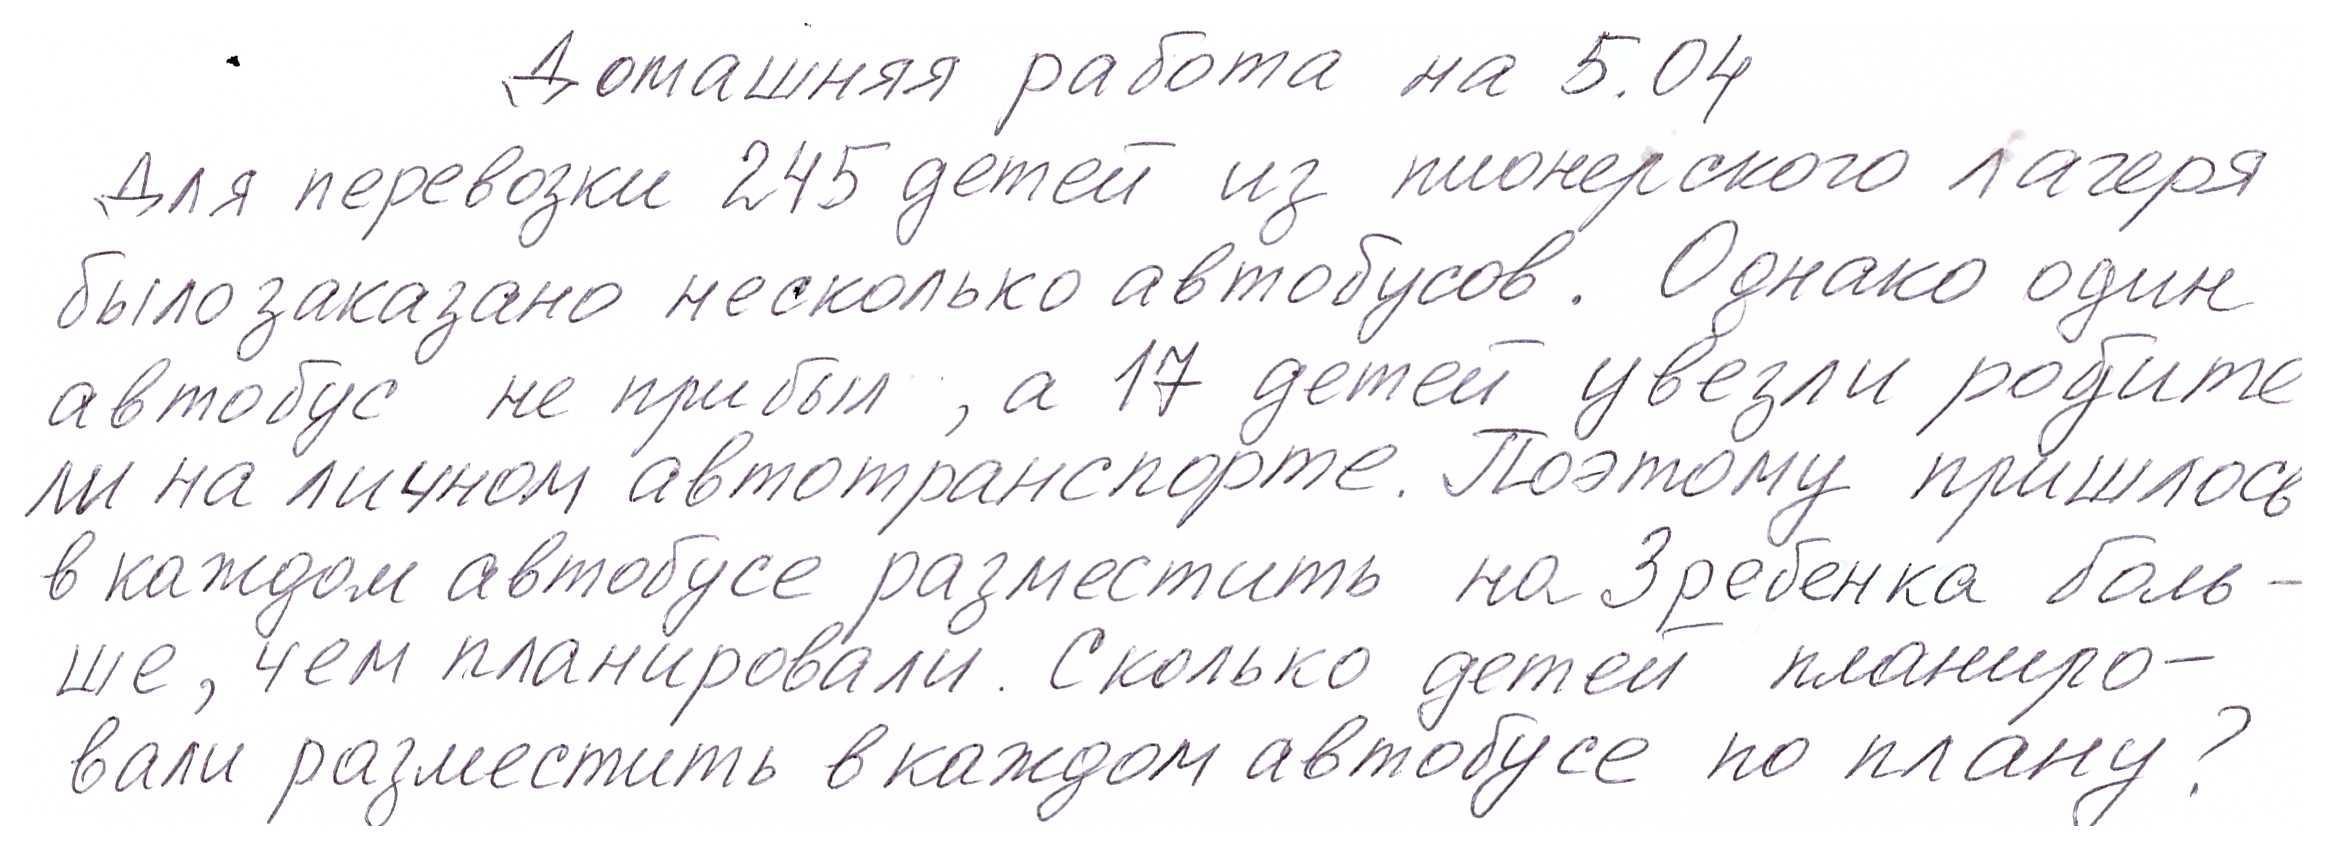 Домашняя работа на 5.04
Для перевозки 245 детей из пионерского лагеря
было заказано несколько автобусов. Однако один
автобус не прибыл, а 17 детей увезли родите
ли на личном автотранспорте. Поэтому пришлось
в каждом автобусе разместить на 3 ребенка боль-
ше, чем планировали. Сколько детей планиро-
вали разместить в каждом автобусе по плану?